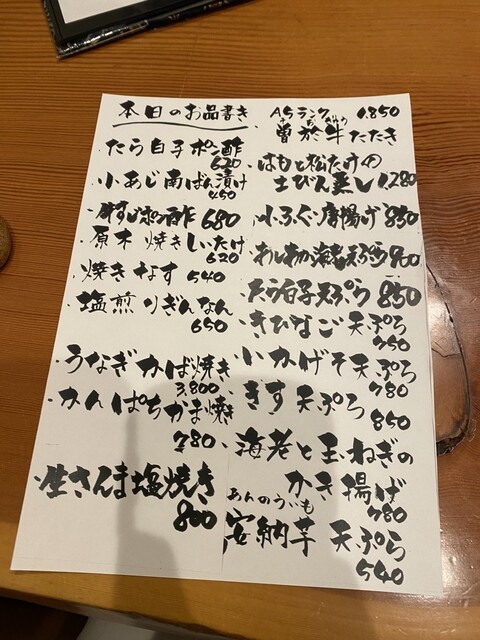 本日のお品書き
たら白子ポン酢
620
小あじ南ばん漬け
450
牛すじポン酢 680
原木 焼きしいたけ
620
焼きなす 540
塩煎りぎんなん
650
うなぎかば焼き
3,800
かんぱちかま焼き
780
生さんま塩焼き
800
A5ランク 1,850
曽於牛たたき
はもと松たけの
土びん蒸し 1,280
小ふぐ唐揚げ 850
海老天ぷら 900
たら白子天ぷら 850
きびなご天ぷら
750
小いかげそ天ぷら
780
きす天ぷら
850
海老と玉ねぎの
かき揚げ
780
あんのういも
安納芋 天ぷら
540